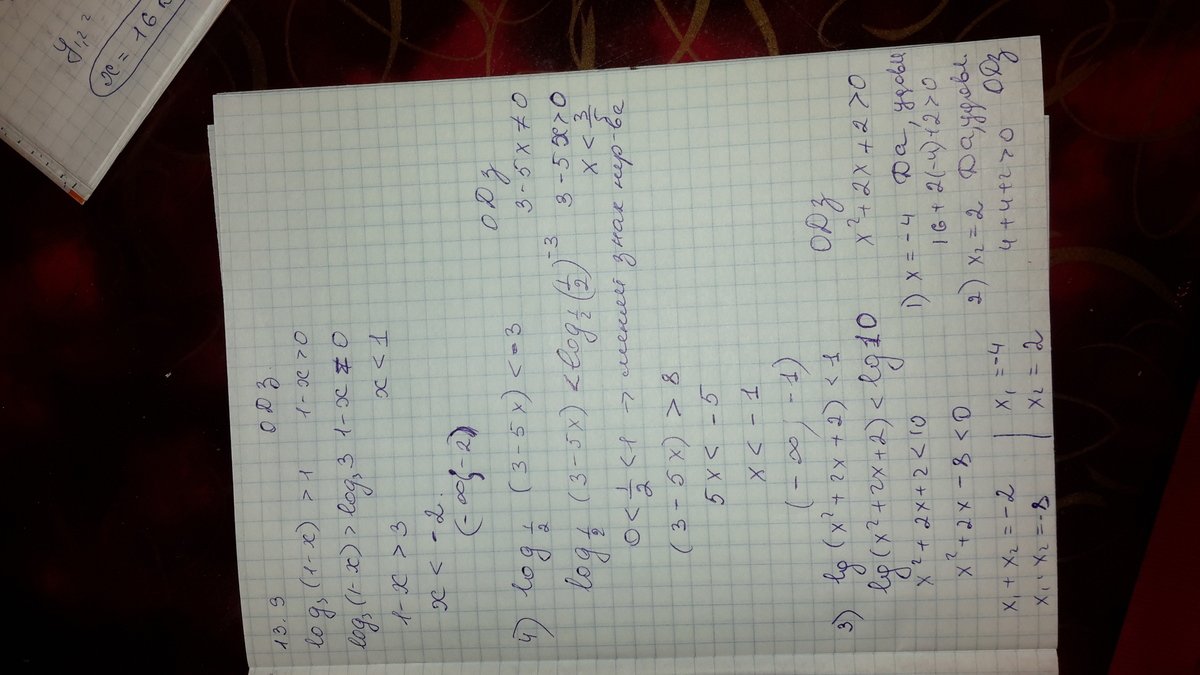 y₁,₂ =
x = 16
13.9
ОДЗ
log₃(1-x) > 1   1-x>0
log₃(1-x) > log₃3   1-x ≠ 0
1-x > 3   x < 1
x < -2.
(-∞; -2)
4) log_{1/2} (3-5x) < -3   ОДЗ   3-5x ≠ 0
log_{1/2} (3-5x) < log_{1/2} (1/2)^{-3}   3-5x>0
x < 3/5
0 < 1/2 < 1 → меняем знак нер-ва
(3-5x) > 8
5x < -5
x < -1
(-∞, -1)
3) lg(x²+2x+2) < 1   ОДЗ
lg(x²+2x+2) < lg10   x²+2x+2>0
x²+2x+2<10
1) x = -4   Да, удовл
x²+2x-8<0   16+2(-4)+2>0
2) x₂=2   Да, удовл.
x₁+x₂=-2 | x₁=-4   4+4+2>0   ОДЗ
x₁·x₂=-8 | x₂=2